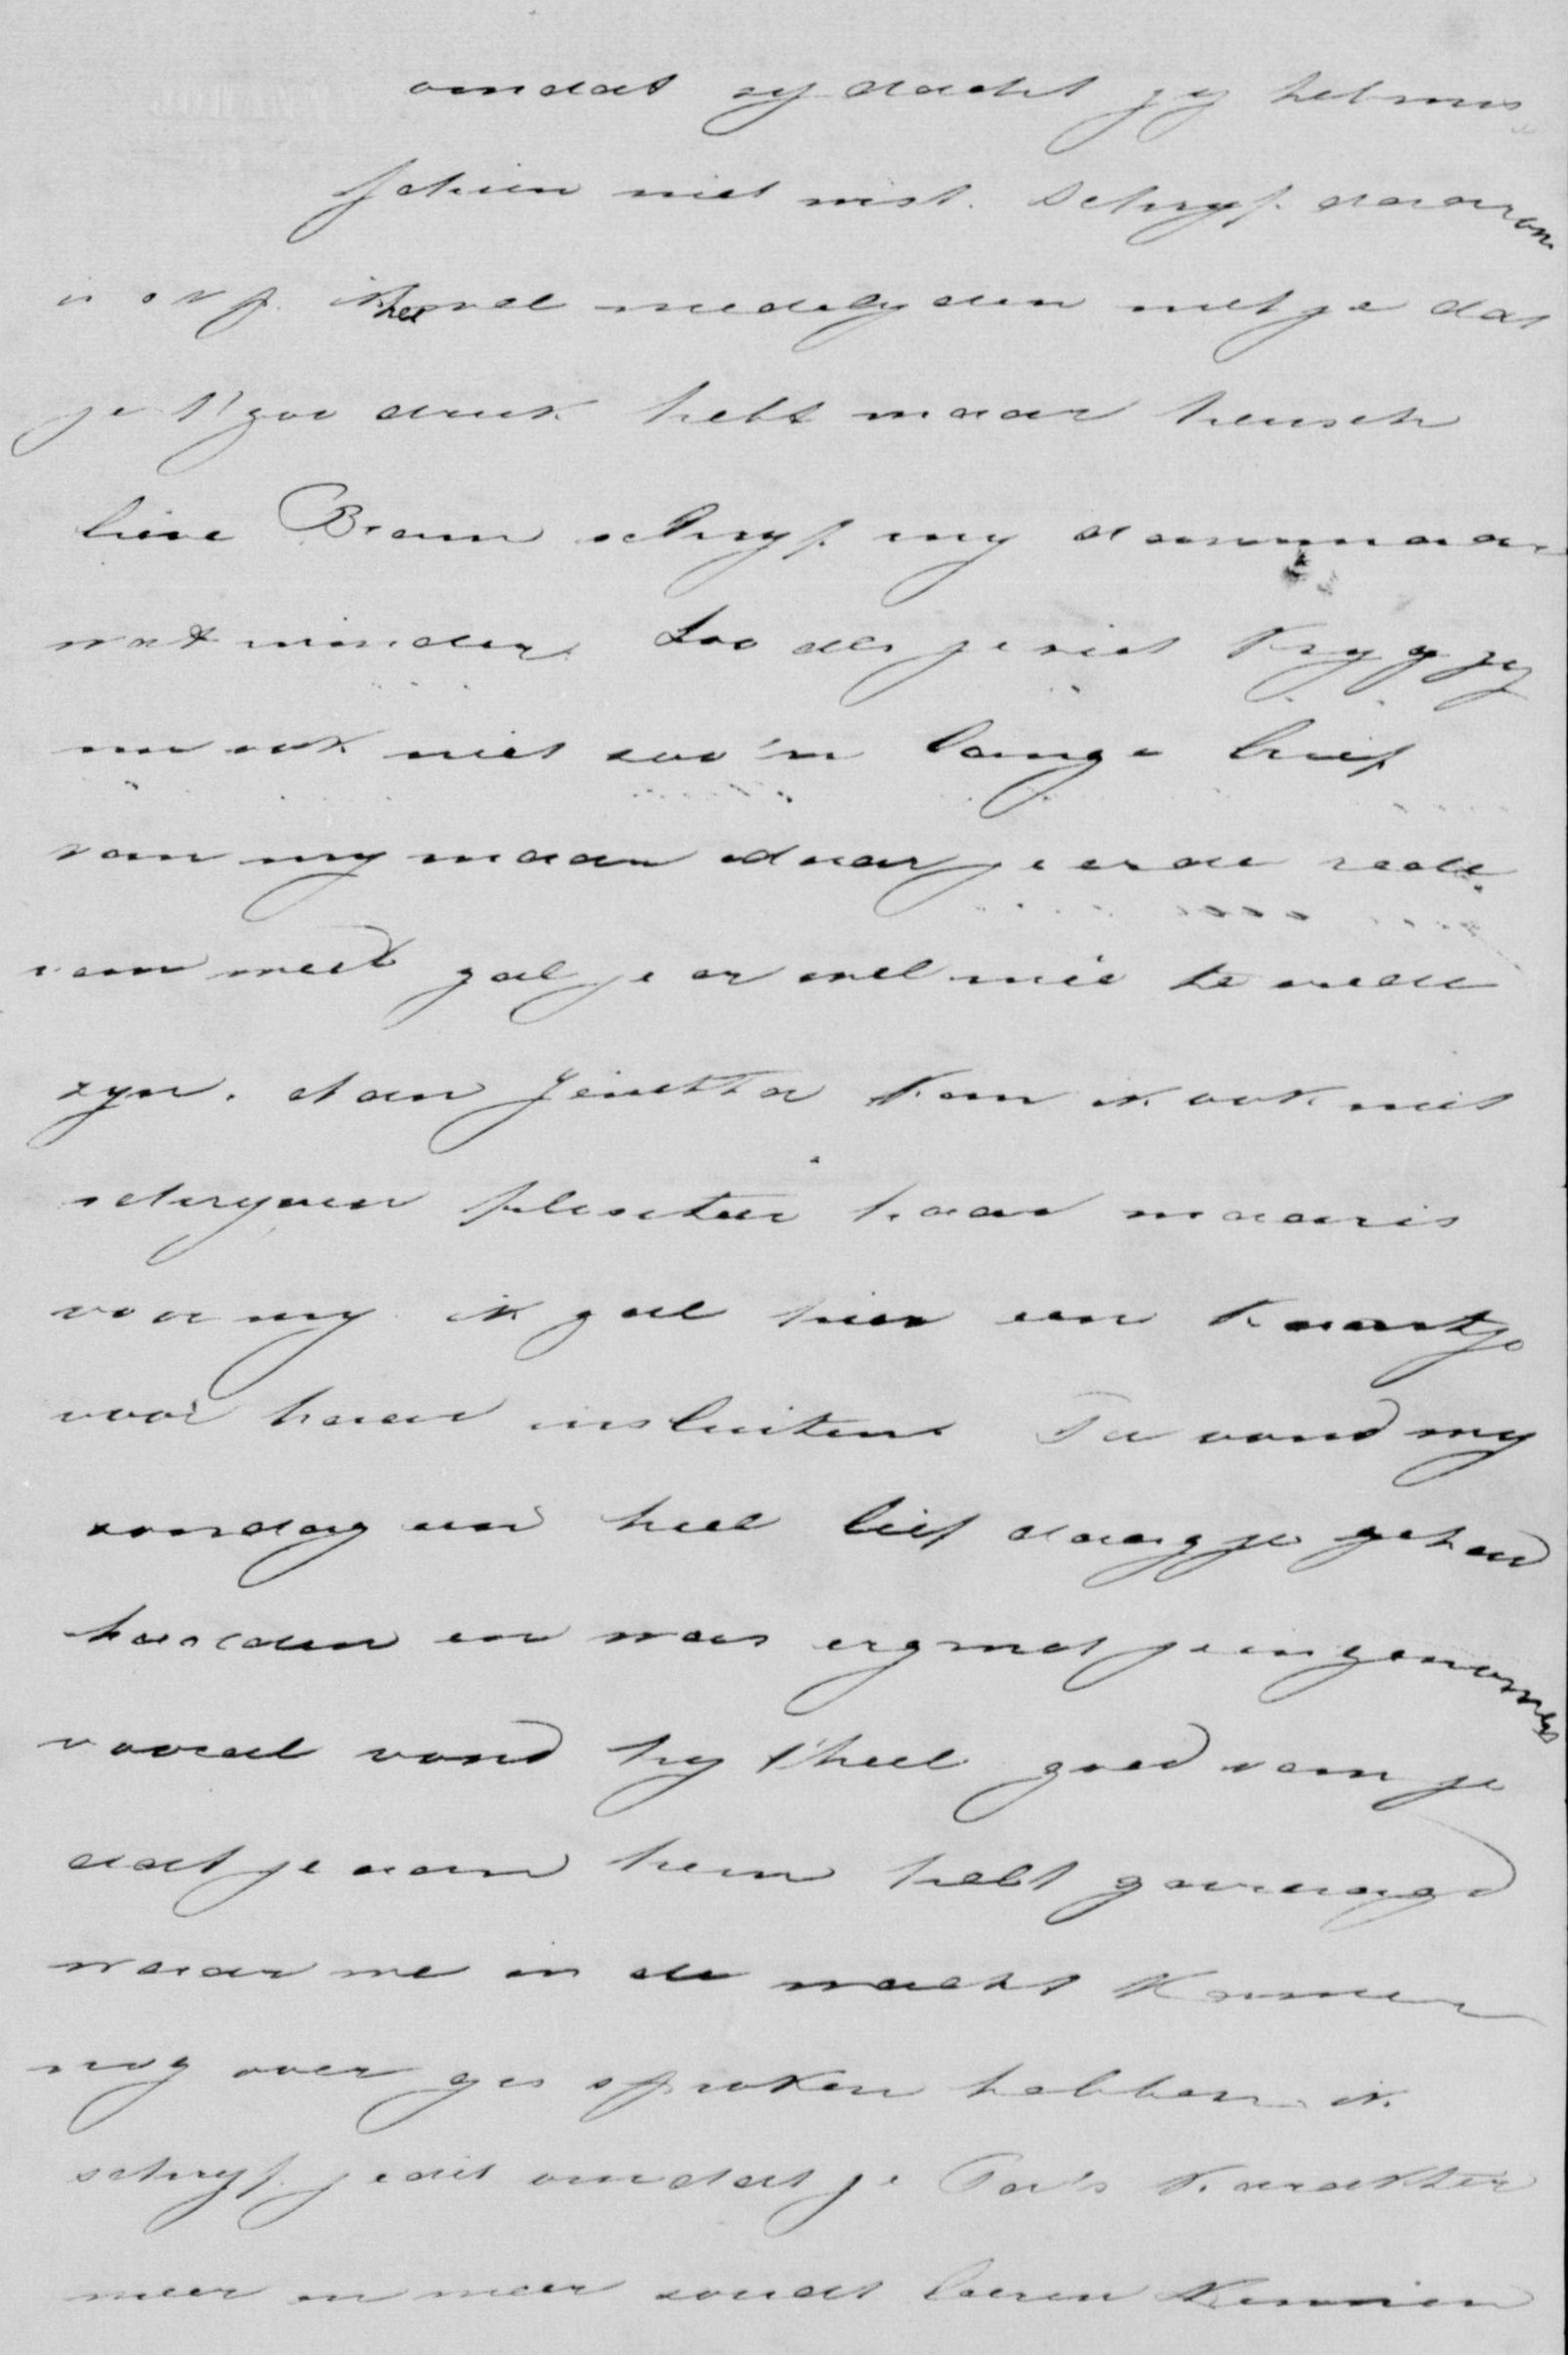 omdat zy dacht jy het mis
schien niet wist. Schryf daarom
is o v p. ik heb wel medelyden met je dat
je 't zoo druk hebt maar heusch
lieve Bram schryf my dan maar
wat minder. Zoo als je ziet kryg jy
nu ook niet zoo'n lange brief
van my maar daar je er de rede
van weet zal je er wel meê te vrede
zyn. Aan Jenetta kan ik ook niet
schryven feliciteer haar maar is
voor my ik zal hier een kaartje
voor haar insluiten Pa vond my
zondag een heel lief dagje gehad
hadden en was erg met je ingenomen
vooral vond hy 't heel goed van je
dat je aan hem hebt gevraagd
waar we in de nacht kamer
nog over gesproken hebben. ik
schryf je dit omdat je Pa's karakter
meer en meer zoudt leeren kennen